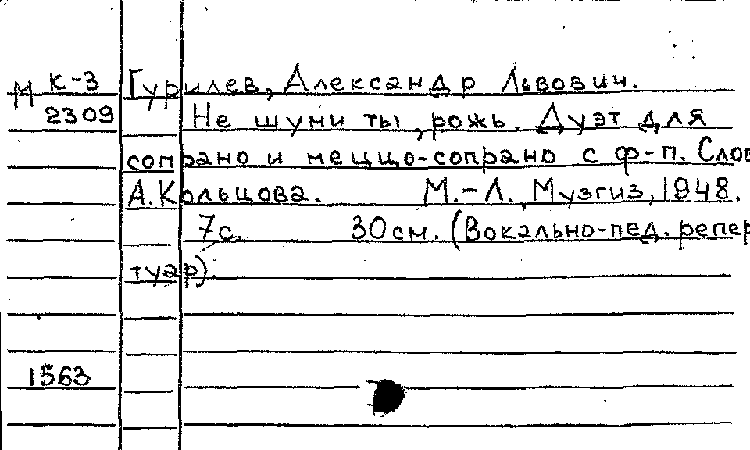 М К-3 Гурилев, Александр Львович.
2309 Не шуми ты, рожь. Дуэт для
сопрано и меццо-сопрано с ф-п. Слов
А. Кольцова. М.-Л., Музгиз, 1948.
7с. 30см. (Вокально-пед. репер
туар).
1563